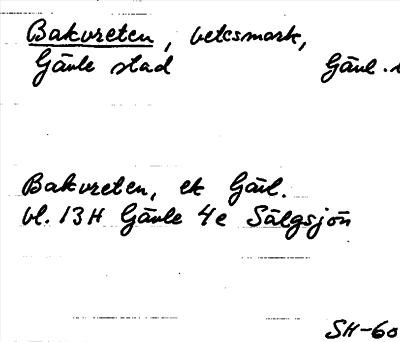 Bakvreten, betesmark,
Gävle stad Gävl.
Bakvreten, ek Gävl.
bl. 13H Gävle 4e Sälgsjön
SH-60